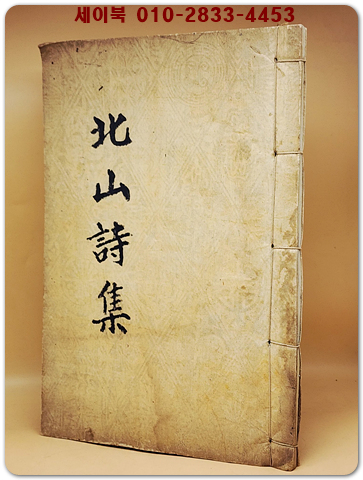 세이북 010-2833-4453
北山詩集